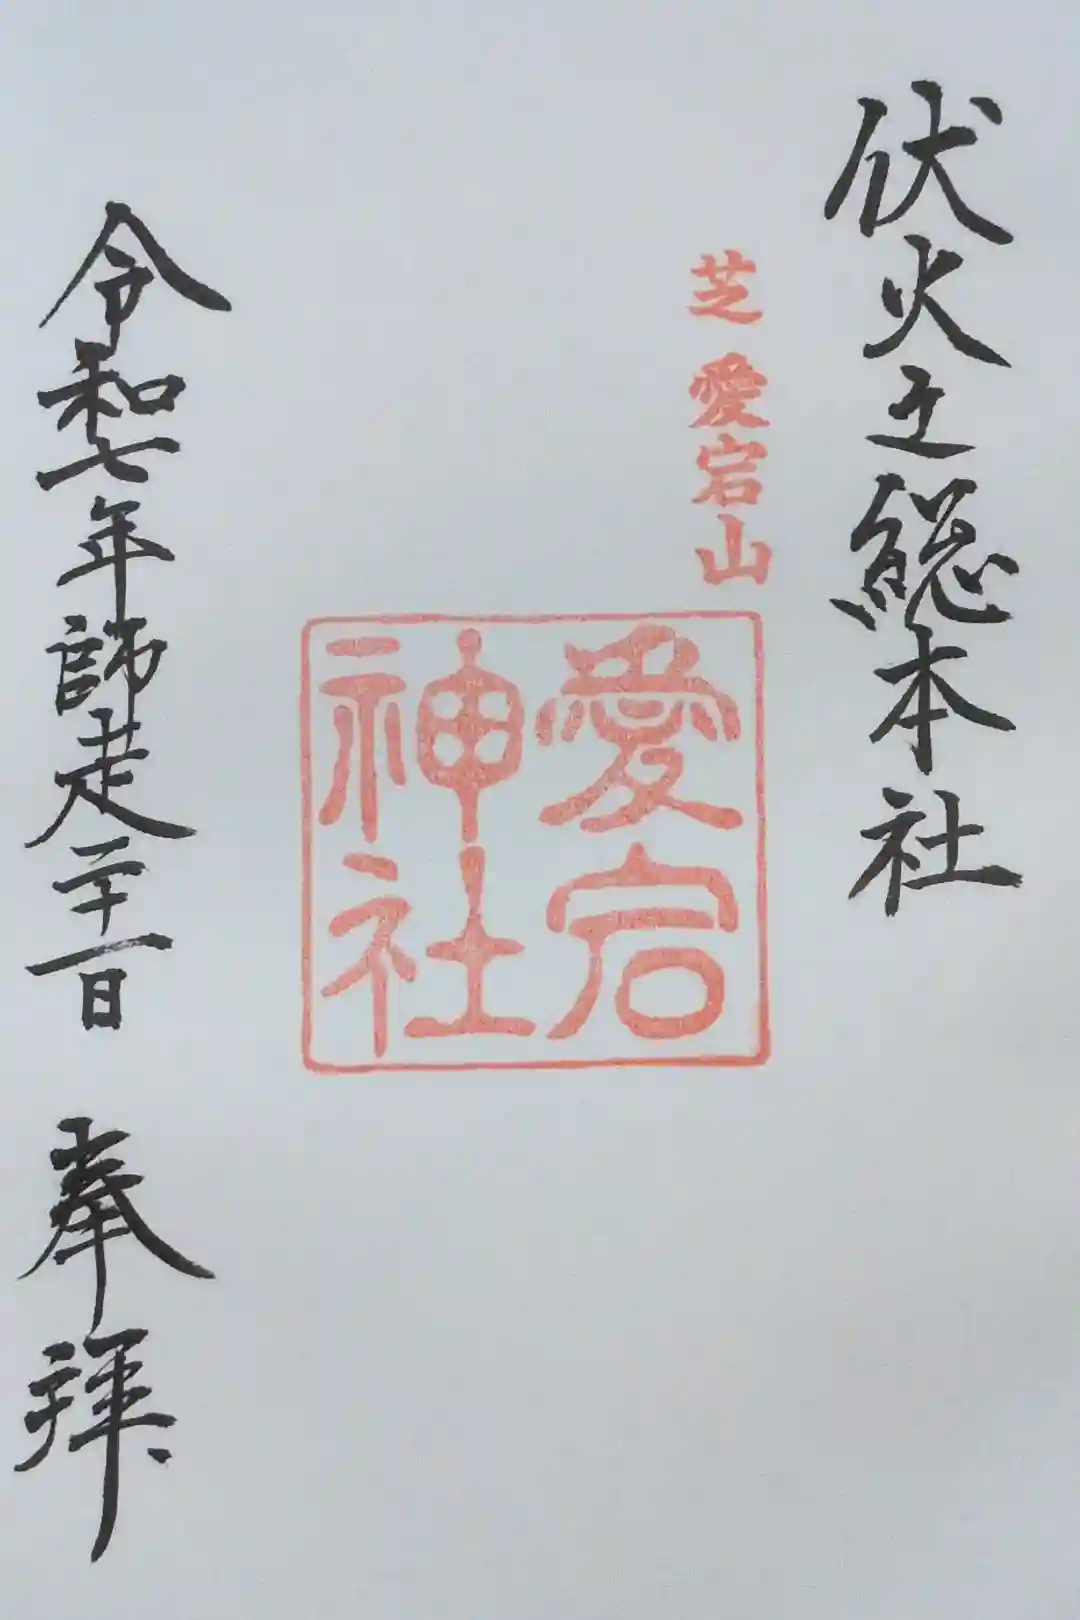 伏火之総本社
芝 愛宕山
愛宕
神社
令和七年師走二十一日 奉拝